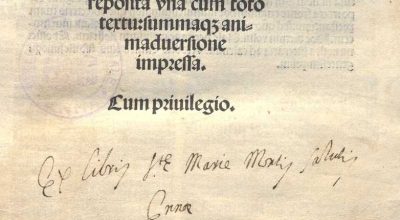 reposita vna cum toto
textu: summaqʒ ani-
maduersione
impressa.
Cum priuilegio.
Ex Libris S.te Marie Montis Salutis
Ennæ